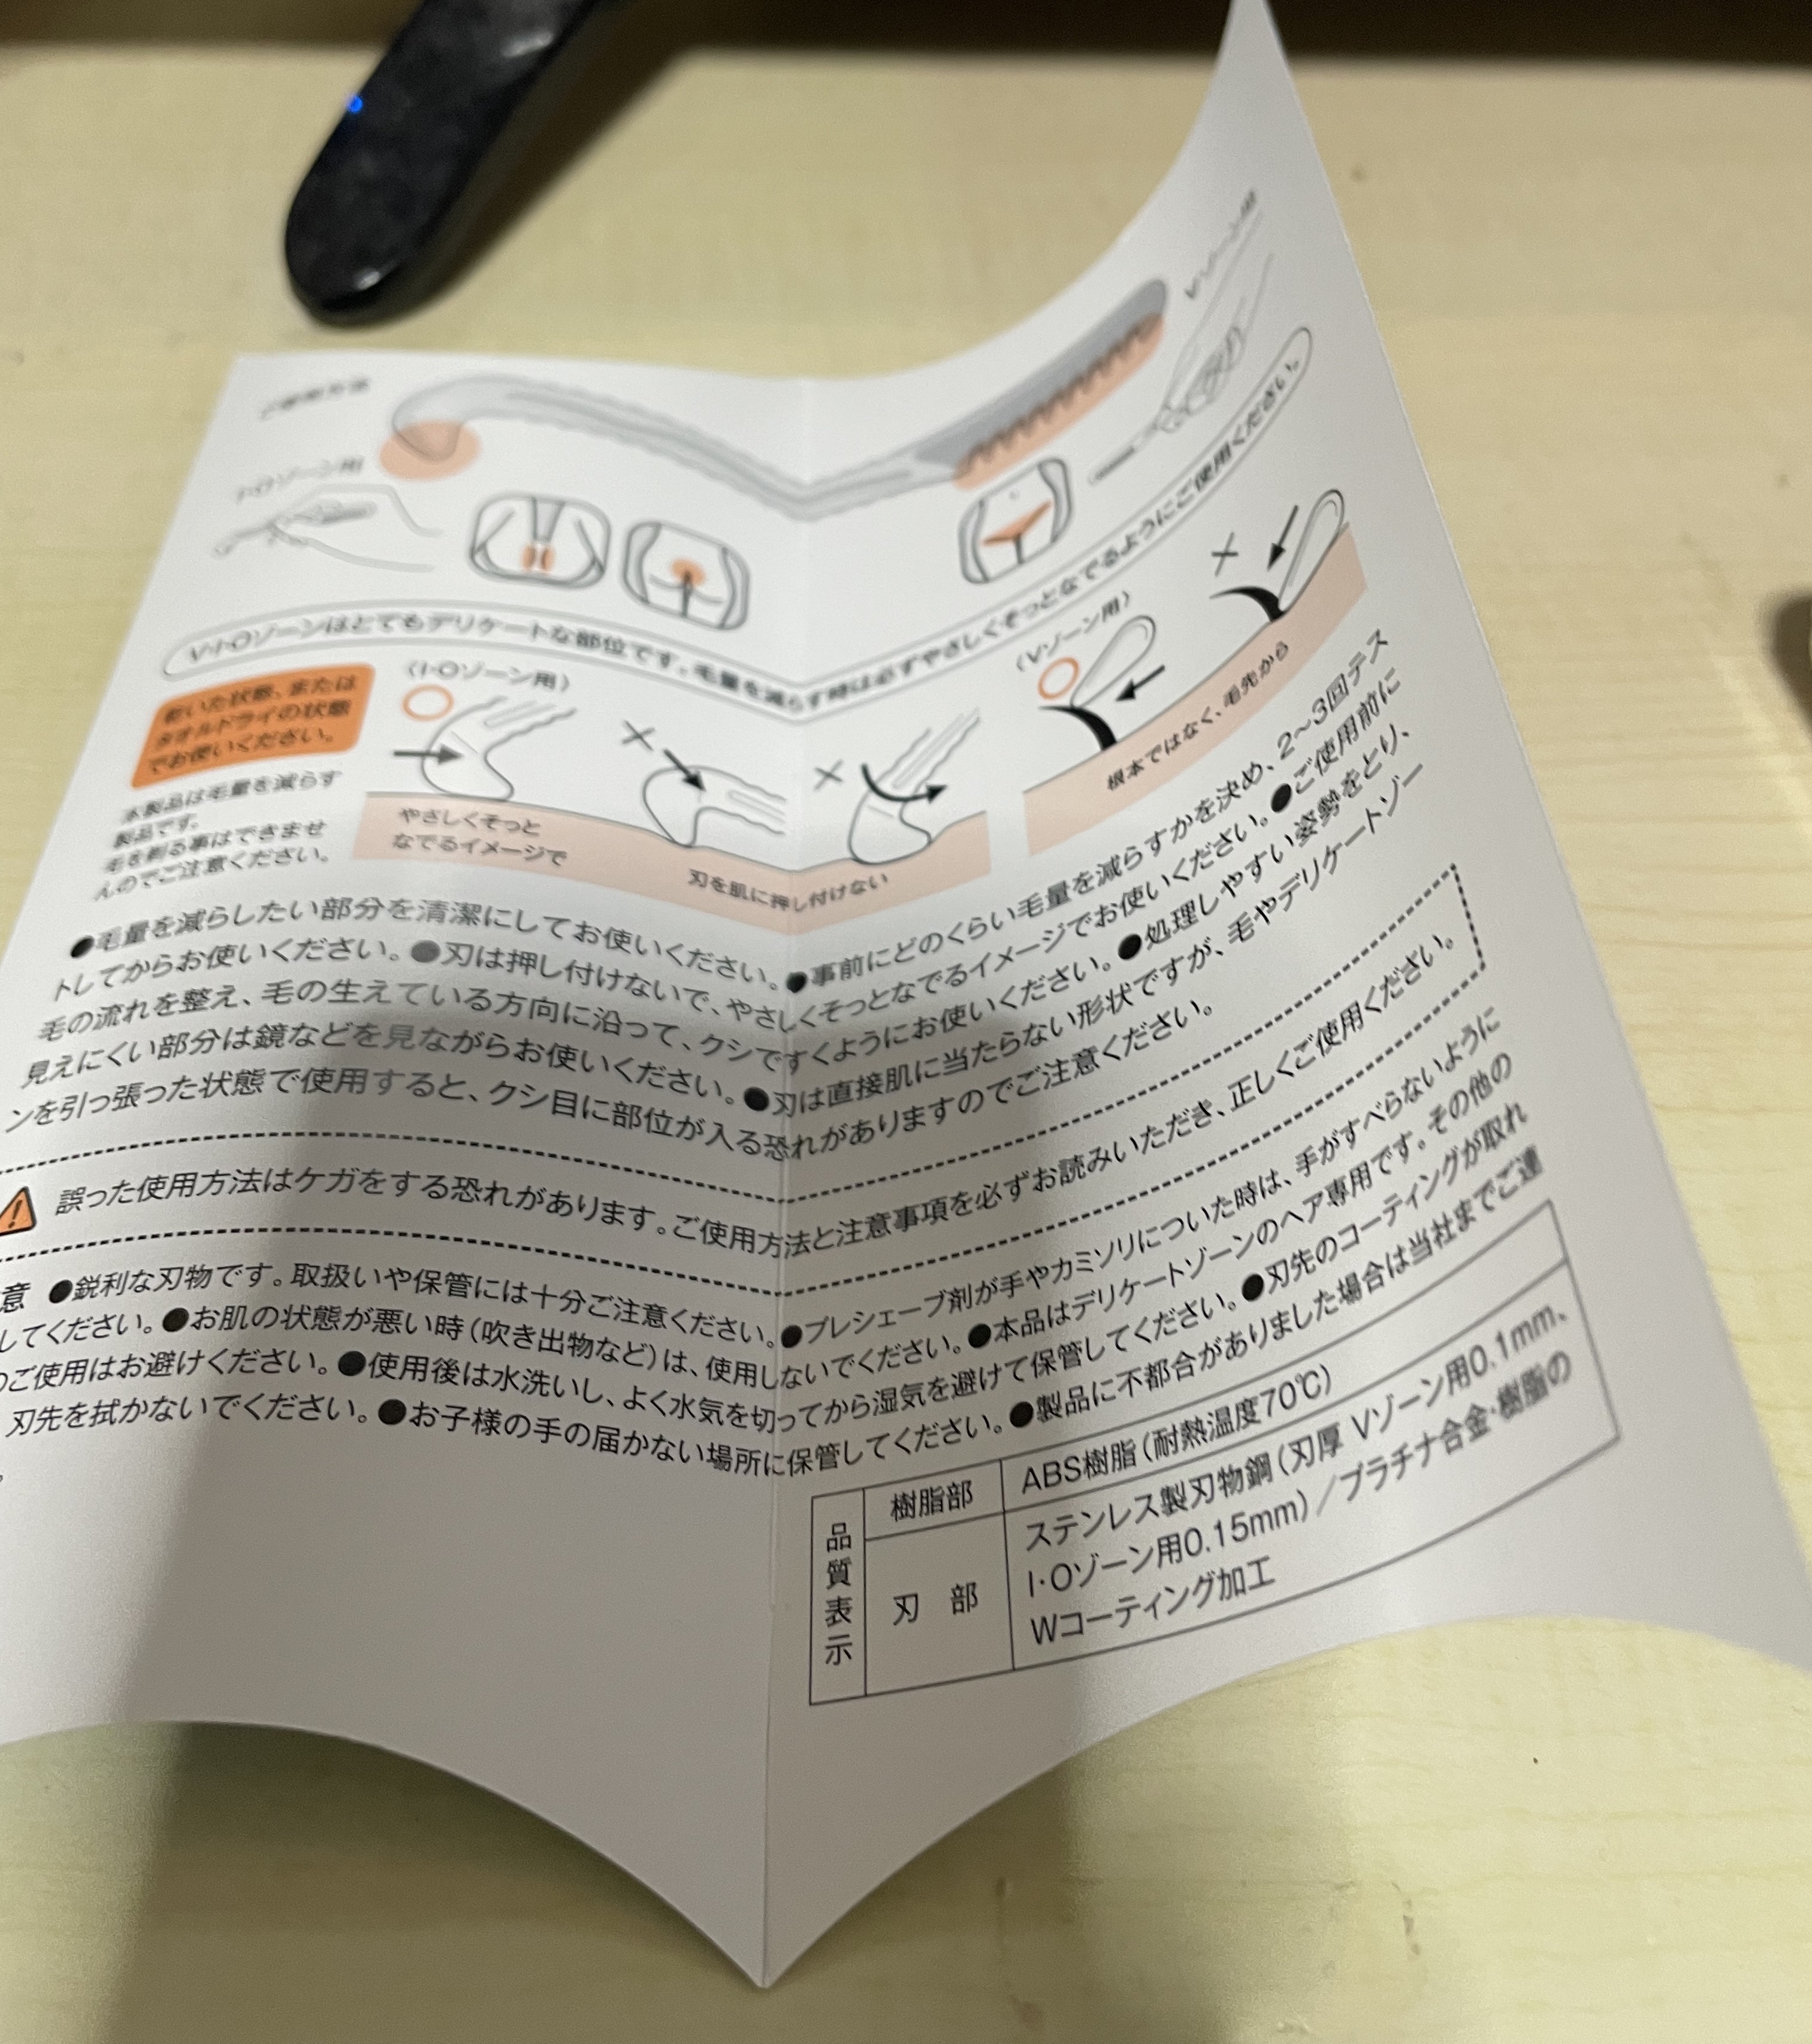 ご使用方法
I・Oゾーン用
Vゾーン用
V・I・Oゾーンはとてもデリケートな部位です。毛量を減らす時は必ずやさしくそっとなでるようにご使用ください。
乾いた状態、または
タオルドライの状態
でお使いください。
本製品は毛量を減らす
製品です。
毛を剃る事はできませ
んのでご注意ください。
(I・Oゾーン用)
やさしくそっと
なでるイメージで
刃を肌に押し付けない
(Vゾーン用)
根本ではなく、毛先から
●毛量を減らしたい部分を清潔にしてお使いください。●事前にどのくらい毛量を減らすかを決め、2〜3回テス
トしてからお使いください。●刃は押し付けないで、やさしくそっとなでるイメージでお使いください。●ご使用前に
毛の流れを整え、毛の生えている方向に沿って、クシですくようにお使いください。●処理しやすい姿勢をとり、
見えにくい部分は鏡などを見ながらお使いください。●刃は直接肌に当たらない形状ですが、毛やデリケートゾー
ンを引っ張った状態で使用すると、クシ目に部位が入る恐れがありますのでご注意ください。
誤った使用方法はケガをする恐れがあります。ご使用方法と注意事項を必ずお読みいただき、正しくご使用ください。
意 ●鋭利な刃物です。取扱いや保管には十分ご注意ください。●プレシェーブ剤が手やカミソリについた時は、手がすべらないように
してください。●お肌の状態が悪い時(吹き出物など)は、使用しないでください。●本品はデリケートゾーンのヘア専用です。その他の
のご使用はお避けください。●使用後は水洗いし、よく水気を切ってから湿気を避けて保管してください。●刃先のコーティングが取れ
刃先を拭かないでください。●お子様の手の届かない場所に保管してください。●製品に不都合がありました場合は当社までご連
。
品質表示
樹脂部 ABS樹脂(耐熱温度70℃)
刃 部 ステンレス製刃物鋼(刃厚 Vゾーン用0.1mm、
I・Oゾーン用0.15mm)/プラチナ合金・樹脂の
Wコーティング加工